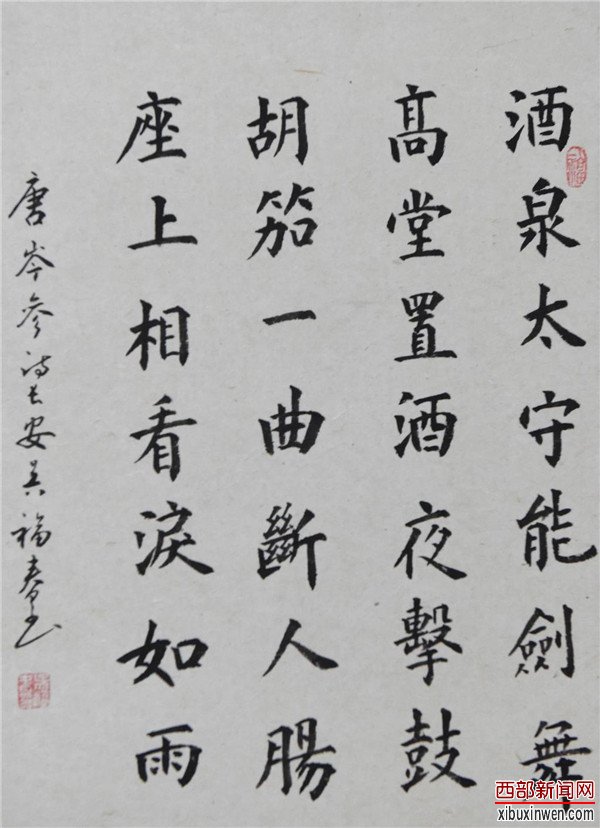 酒泉太守能劍舞
高堂置酒夜擊鼓
胡笳一曲斷人腸
座上相看淚如雨
唐岑參诗长安吴福春书
西部新闻网
xibuxinwen.com